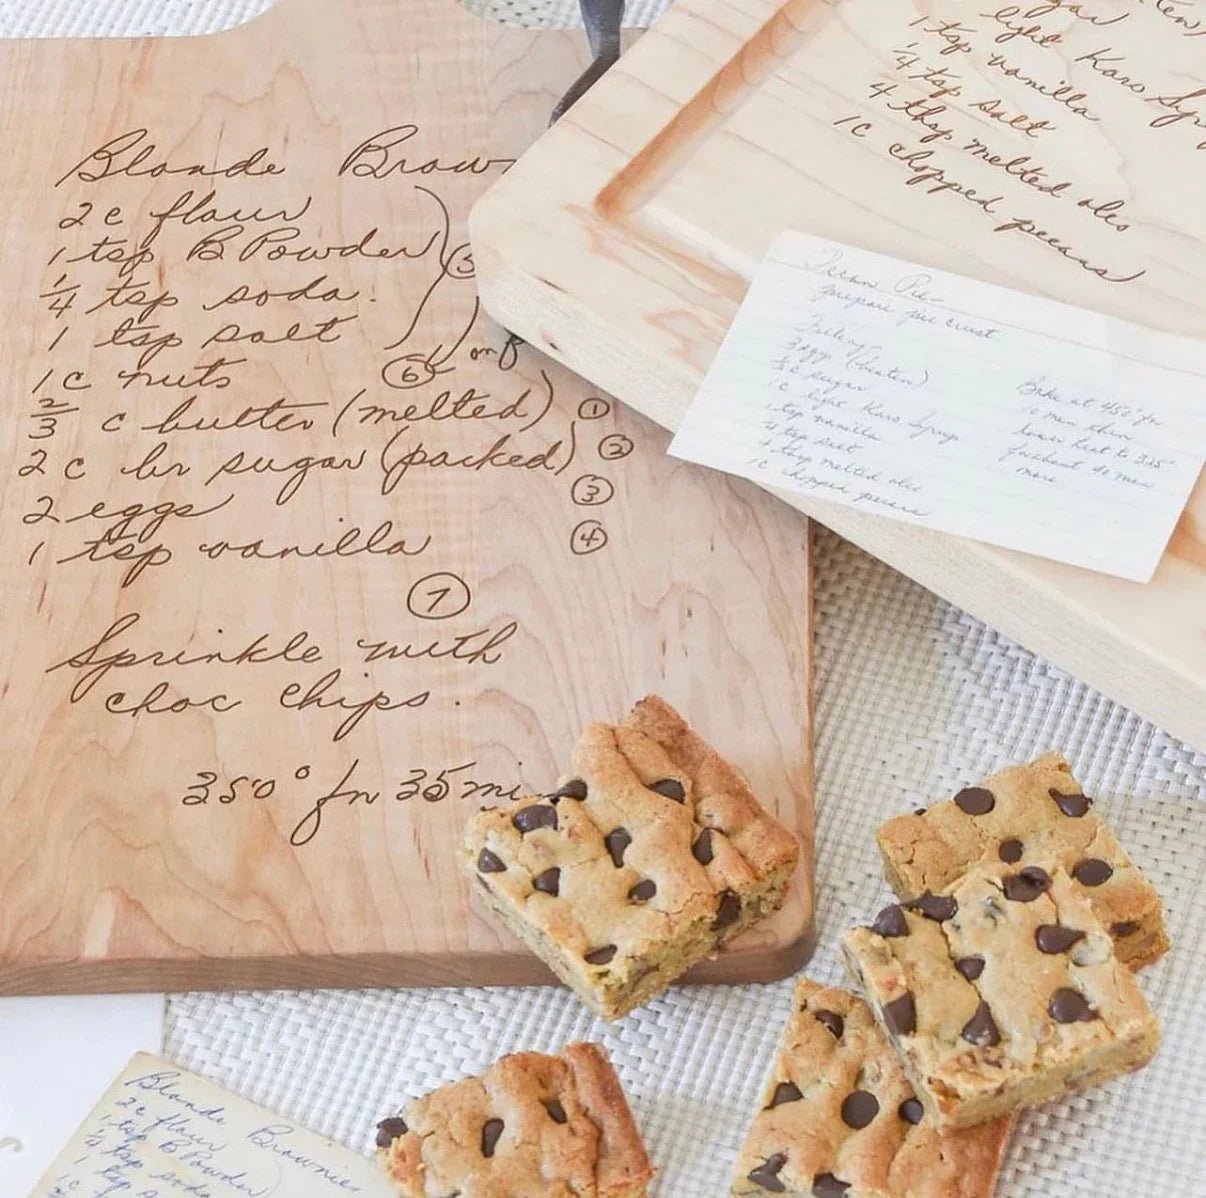 Blonde Brow
2 c flour
1 tsp B Powder
1/4 tsp soda.
1 tsp salt
5
1 c nuts
6
2/3 c butter (melted) 1
2 c br sugar (packed) 2
2 eggs 3
1 tsp vanilla 4
7
Sprinkle with
choc chips.
350° fn 35 mi
sugar
light Karo Syr
1 tsp vanilla
1/4 tsp salt
4 tbsp melted oleo
1 c chopped pecans
Pecan Pie
prepare pie crust
Filling
3 eggs (beaten)
sugar
1 c light Karo Syrup
1 tsp vanilla
1/4 tsp salt
4 tbsp melted oleo
1c chopped pecans
Bake at 450° fn
10 min then
lower heat to 325°
more
Blonde Brownies
2 c flour
1 tsp B Powder
1/4 tsp soda
1 tsp